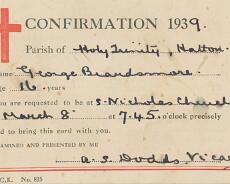 CONFIRMATION 1939.
Parish of Holy Trinity, Halton.
ame George Beardsmore.
ge 16. years
ou are requested to be at S. Nicholas Church
March 8. at 7.45. o'clock precisely
nd to bring this card with you.
XAMINED AND PRESENTED BY ME
A. S. Dodds, Vicar
.C.K. No. 835